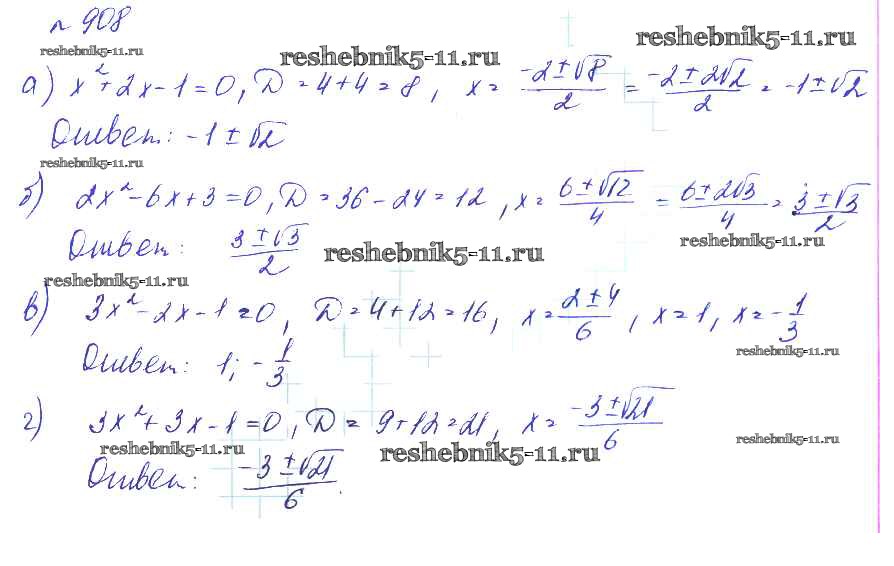 № 908
reshebnik5-11.ru
reshebnik5-11.ru
reshebnik5-11.ru
а) x²+2x-1=0, D=4+4=8, x= (-2±√8)/2 = (-2±2√2)/2 = -1±√2
Ответ: -1±√2
reshebnik5-11.ru
б) 2x²-6x+3=0, D=36-24=12, x= (6±√12)/4 = (6±2√3)/4 = (3±√3)/2
reshebnik5-11.ru
Ответ: (3±√3)/2
reshebnik5-11.ru
reshebnik5-11.ru
в) 3x²-2x-1=0, D=4+12=16, x= (2±4)/6, x=1, x=-1/3
reshebnik5-11.ru
Ответ: 1; -1/3
г) 3x²+3x-1=0, D=9+12=21, x= (-3±√21)/6
reshebnik5-11.ru
reshebnik5-11.ru
reshebnik5-11.ru
Ответ: (-3±√21)/6.